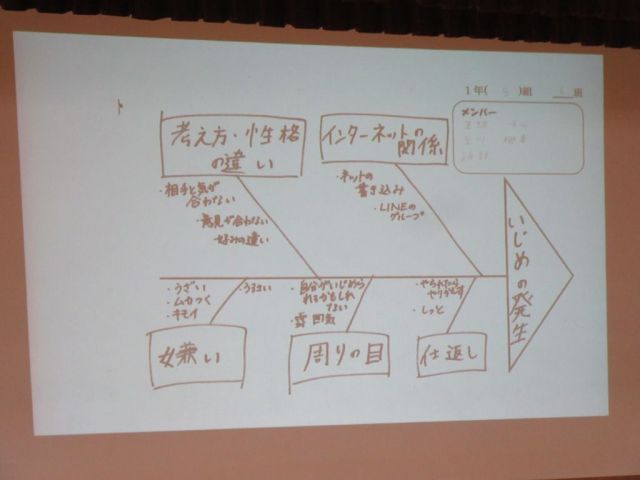 1年( )組 班
メンバー
考え方・性格
の違い
インターネットの
関係
・相手と気が
合わない
・意見が合わない
好みの違い
・ネットの
書き込み
・LINEの
グループ
いじめの発生
・うざい
・ムカつく
・キモイ
・うるさい
・自分がいじめら
れるかもしれ
ない
・雰囲気
・やられたら
やりかえす
・しっと
嫌い
周りの目
仕返し